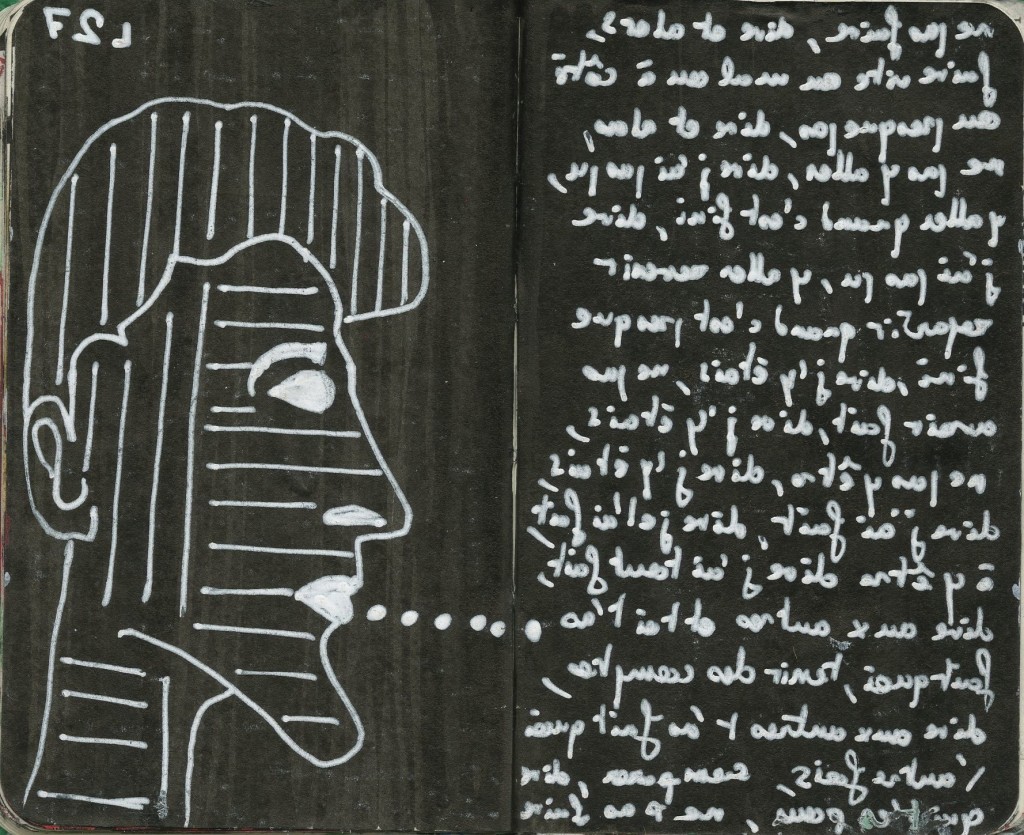 627
ne pas faire, dire et alors,
faire vite ou mal ou à côté
ou presque pas, dire et alors,
ne pas y aller, dire j'ai pas pu,
y aller quand c'est fini, dire
j'ai pas pu, y aller revenir
repartir quand c'est presque
fini, dire j'y étais, ne pas
avoir fait, dire j'y étais,
ne pas y être, dire j'y étais,
dire j'ai fait, dire je l'ai fait,
à y être dire j'ai tout fait,
dire aux autres et toi t'as
fait quoi, tenir des comptes,
dire aux autres t'as fait quoi
l'autre fois, comparer, dire
pour, ne pas faire